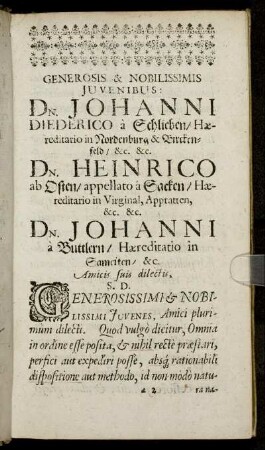 GENEROSIS & NOBILISSIMIS
JUVENIBUS:
DN. JOHANNI
DIEDERICO à Schlieben/ Hæ-
reditario in Nordenburg & Bircken-
feld/ &c. &c.
DN. HEINRICO
ab Osten/ appellato à Sacken/ Hæ-
reditario in Virginal, Apptatten,
&c. &c.
DN. JOHANNI
à Buttlern/ Hæreditatio in
Samciten/ &c.
Amicis suis dilectis.
S. D.
GENEROSISSIMI & NOBI-
LISSIMI JUVENES, Amici pluri-
mùm dilecti. Quod vulgò dicitur, Omnia
in ordine esse posita, & nihil rectè præstari,
perfici aut expediri posse, absq; rationabili
dispositione aut methodo, id non modò natu-
a 2 ra na-